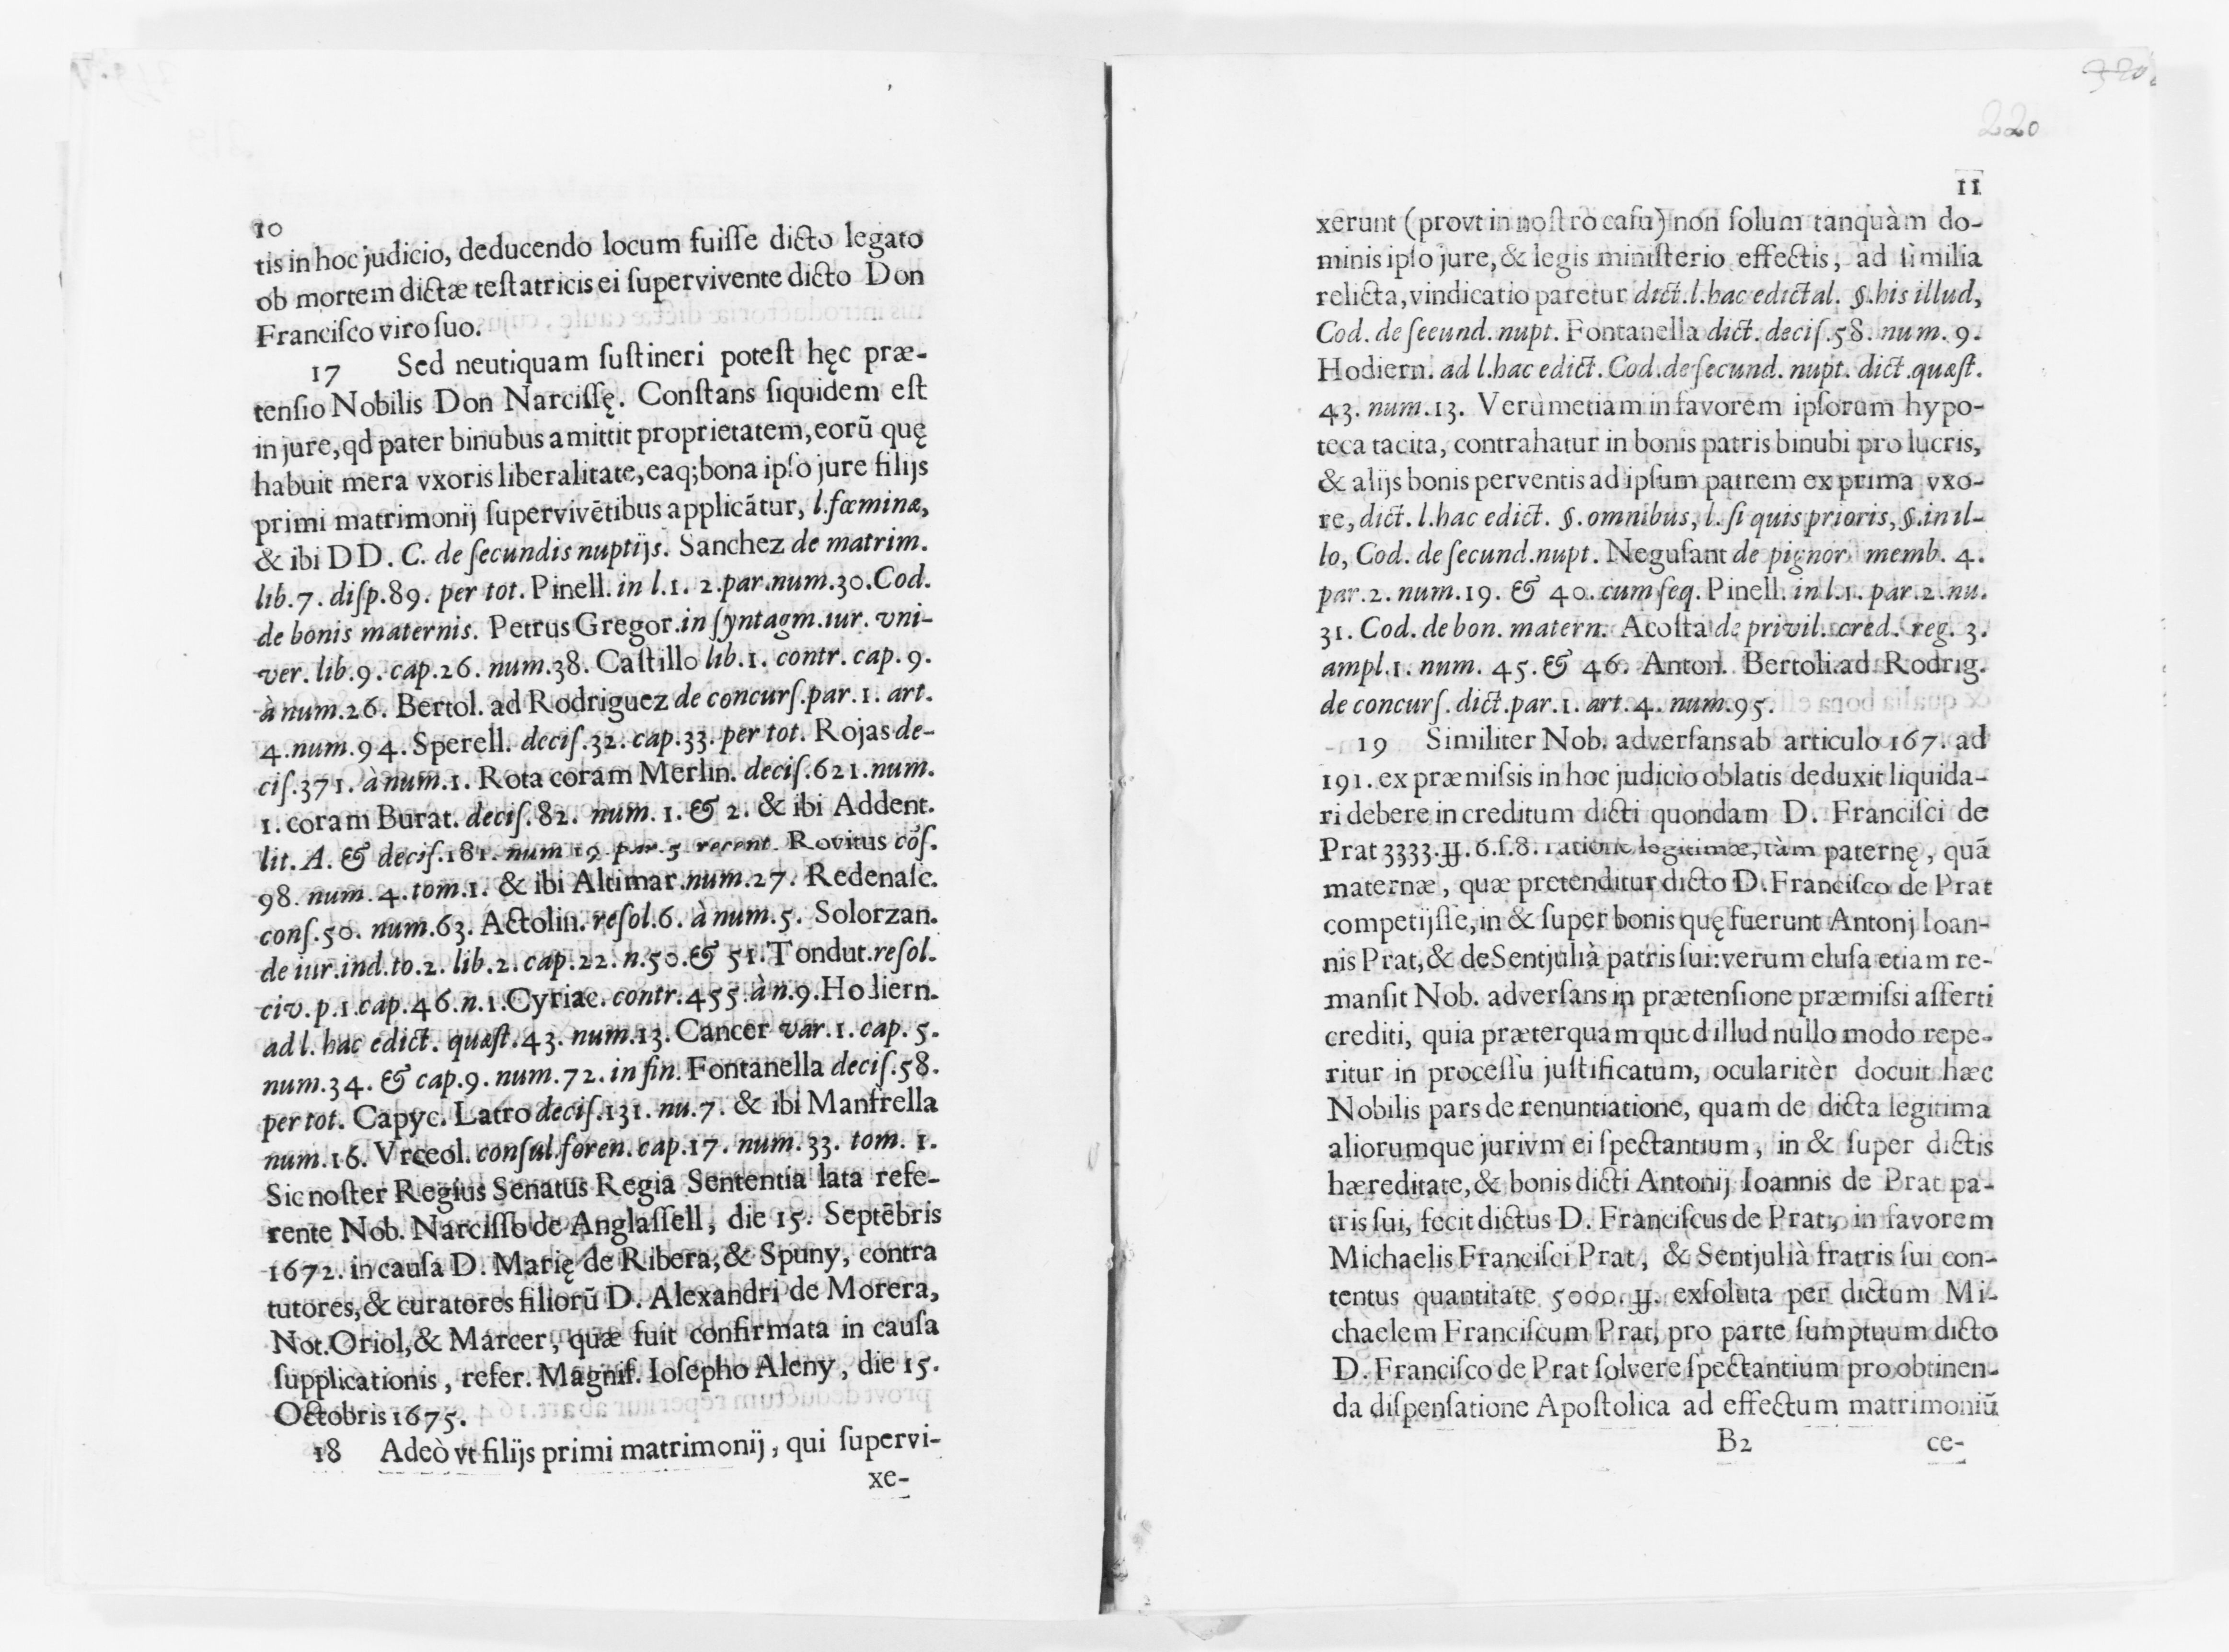 10
tis in hoc judicio, deducendo locum fuiſſe dicto legato
ob mortem dictæ teſtatricis ei ſupervivente dicto Don
Franciſco viro ſuo.
17 Sed neutiquam ſuſtineri poteſt hęc præ-
tenſio Nobilis Don Narciſſę. Conſtans ſiquidem eſt
in jure, qd pater binubus amittit proprietatem, eorũ quę
habuit mera vxoris liberalitate, eaq; bona ipſo jure filijs
primi matrimonij ſupervivẽtibus applicãtur, l. fœminæ,
& ibi DD. C. de ſecundis nuptijs. Sanchez de matrim.
lib. 7. diſp. 89. per tot. Pinell. in l. 1. 2. par. num. 30. Cod.
de bonis maternis. Petrus Gregor. in ſyntagm. iur. vni-
ver. lib. 9. cap. 26. num. 38. Caſtillo lib. 1. contr. cap. 9.
à num. 26. Bertol. ad Rodriguez de concurſ. par. 1. art.
4. num. 94. Sperell. deciſ. 32. cap. 33. per tot. Rojas de-
ciſ. 371. à num. 1. Rota coram Merlin. deciſ. 621. num.
1. coram Burat. deciſ. 82. num. 1. & 2. & ibi Addent.
lit. A. & deciſ. 181. num 19. par. 5 recent. Rovitus cõſ.
98. num. 4. tom. 1. & ibi Altimar. num. 27. Redenaſc.
conſ. 50. num. 63. Actolin. reſol. 6. à num. 5. Solorzan.
de iur. ind. to. 2. lib. 2. cap. 22. n. 50. & 51. Tondut. reſol.
civ. p. 1. cap. 46. n. 1. Cyriac. contr. 455. à n. 9. Hodiern.
ad l. hac edict. quæſt. 43. num. 13. Cancer var. 1. cap. 5.
num. 34. & cap. 9. num. 72. in fin. Fontanella deciſ. 58.
per tot. Capyc. Latro deciſ. 131. nu. 7. & ibi Manfrella
num. 16. Vrceol. conſul. foren. cap. 17. num. 33. tom. 1.
Sic noſter Regius Senatus Regia Sententia lata refe-
rente Nob. Narciſſo de Anglaſſell, die 15. Septẽbris
1672. in cauſa D. Marię de Ribera, & Spuny, contra
tutores, & curatores filiorũ D. Alexandri de Morera,
Not. Oriol, & Marcer, quæ fuit confirmata in cauſa
ſupplicationis, refer. Magnif. Ioſepho Aleny, die 15.
Octobris 1675.
18 Adeò vt filijs primi matrimonij, qui ſupervi-
xe-
320
220
11
xerunt (provt in noſtro caſu) non ſolum tanquàm do-
minis ipſo jure, & legis miniſterio effectis, ad ſimilia
relicta, vindicatio paretur dict. l. hac edictal. §. his illud,
Cod. de ſecund. nupt. Fontanella dict. deciſ. 58. num. 9.
Hodiern. ad l. hac edict. Cod. de ſecund. nupt. dict. quæſt.
43. num. 13. Verùm etiam in favorem ipſorum hypo-
teca tacita, contrahatur in bonis patris binubi pro lucris,
& alijs bonis perventis ad ipſum patrem ex prima vxo-
re, dict. l. hac edict. §. omnibus, l. ſi quis prioris, §. in il-
lo, Cod. de ſecund. nupt. Neguſant de pignor. memb. 4.
par. 2. num. 19. & 40. cum ſeq. Pinell. in l. 1. par. 2. nu.
31. Cod. de bon. matern. Acoſta de privil. cred. reg. 3.
ampl. 1. num. 45. & 46. Anton. Bertoli. ad Rodrig.
de concurſ. dict. par. 1. art. 4. num. 95.
19 Similiter Nob. adverſans ab articulo 167. ad
191. ex præmiſsis in hoc judicio oblatis deduxit liquida-
ri debere in creditum dicti quondam D. Franciſci de
Prat 3333. ₶. 6. ſ. 8. ratione legitimæ, tàm paternę, quã
maternæ, quæ pretenditur dicto D. Franciſco de Prat
competijſſe, in & ſuper bonis quę fuerunt Antonj Ioan-
nis Prat, & de Sentjulià patris ſui: verum eluſa etiam re-
manſit Nob. adverſans in prætenſione præmiſsi aſſerti
crediti, quia præterquam quod illud nullo modo repe-
ritur in proceſſu juſtificatum, oculariter docuit hæc
Nobilis pars de renuntiatione, quam de dicta legitima
aliorumque jurivm ei ſpectantium, in & ſuper dictis
hæreditate, & bonis dicti Antonij Ioannis de Prat pa-
tris ſui, fecit dictus D. Franciſcus de Prat, in favorem
Michaelis Franciſci Prat, & Sentjulià fratris ſui con-
tentus quantitate 5000. ₶. exſoluta per dictum Mi-
chaelem Franciſcum Prat, pro parte ſumptuum dicto
D. Franciſco de Prat ſolvere ſpectantium pro obtinen-
da diſpenſatione Apoſtolica ad effectum matrimoniũ
B2 ce-